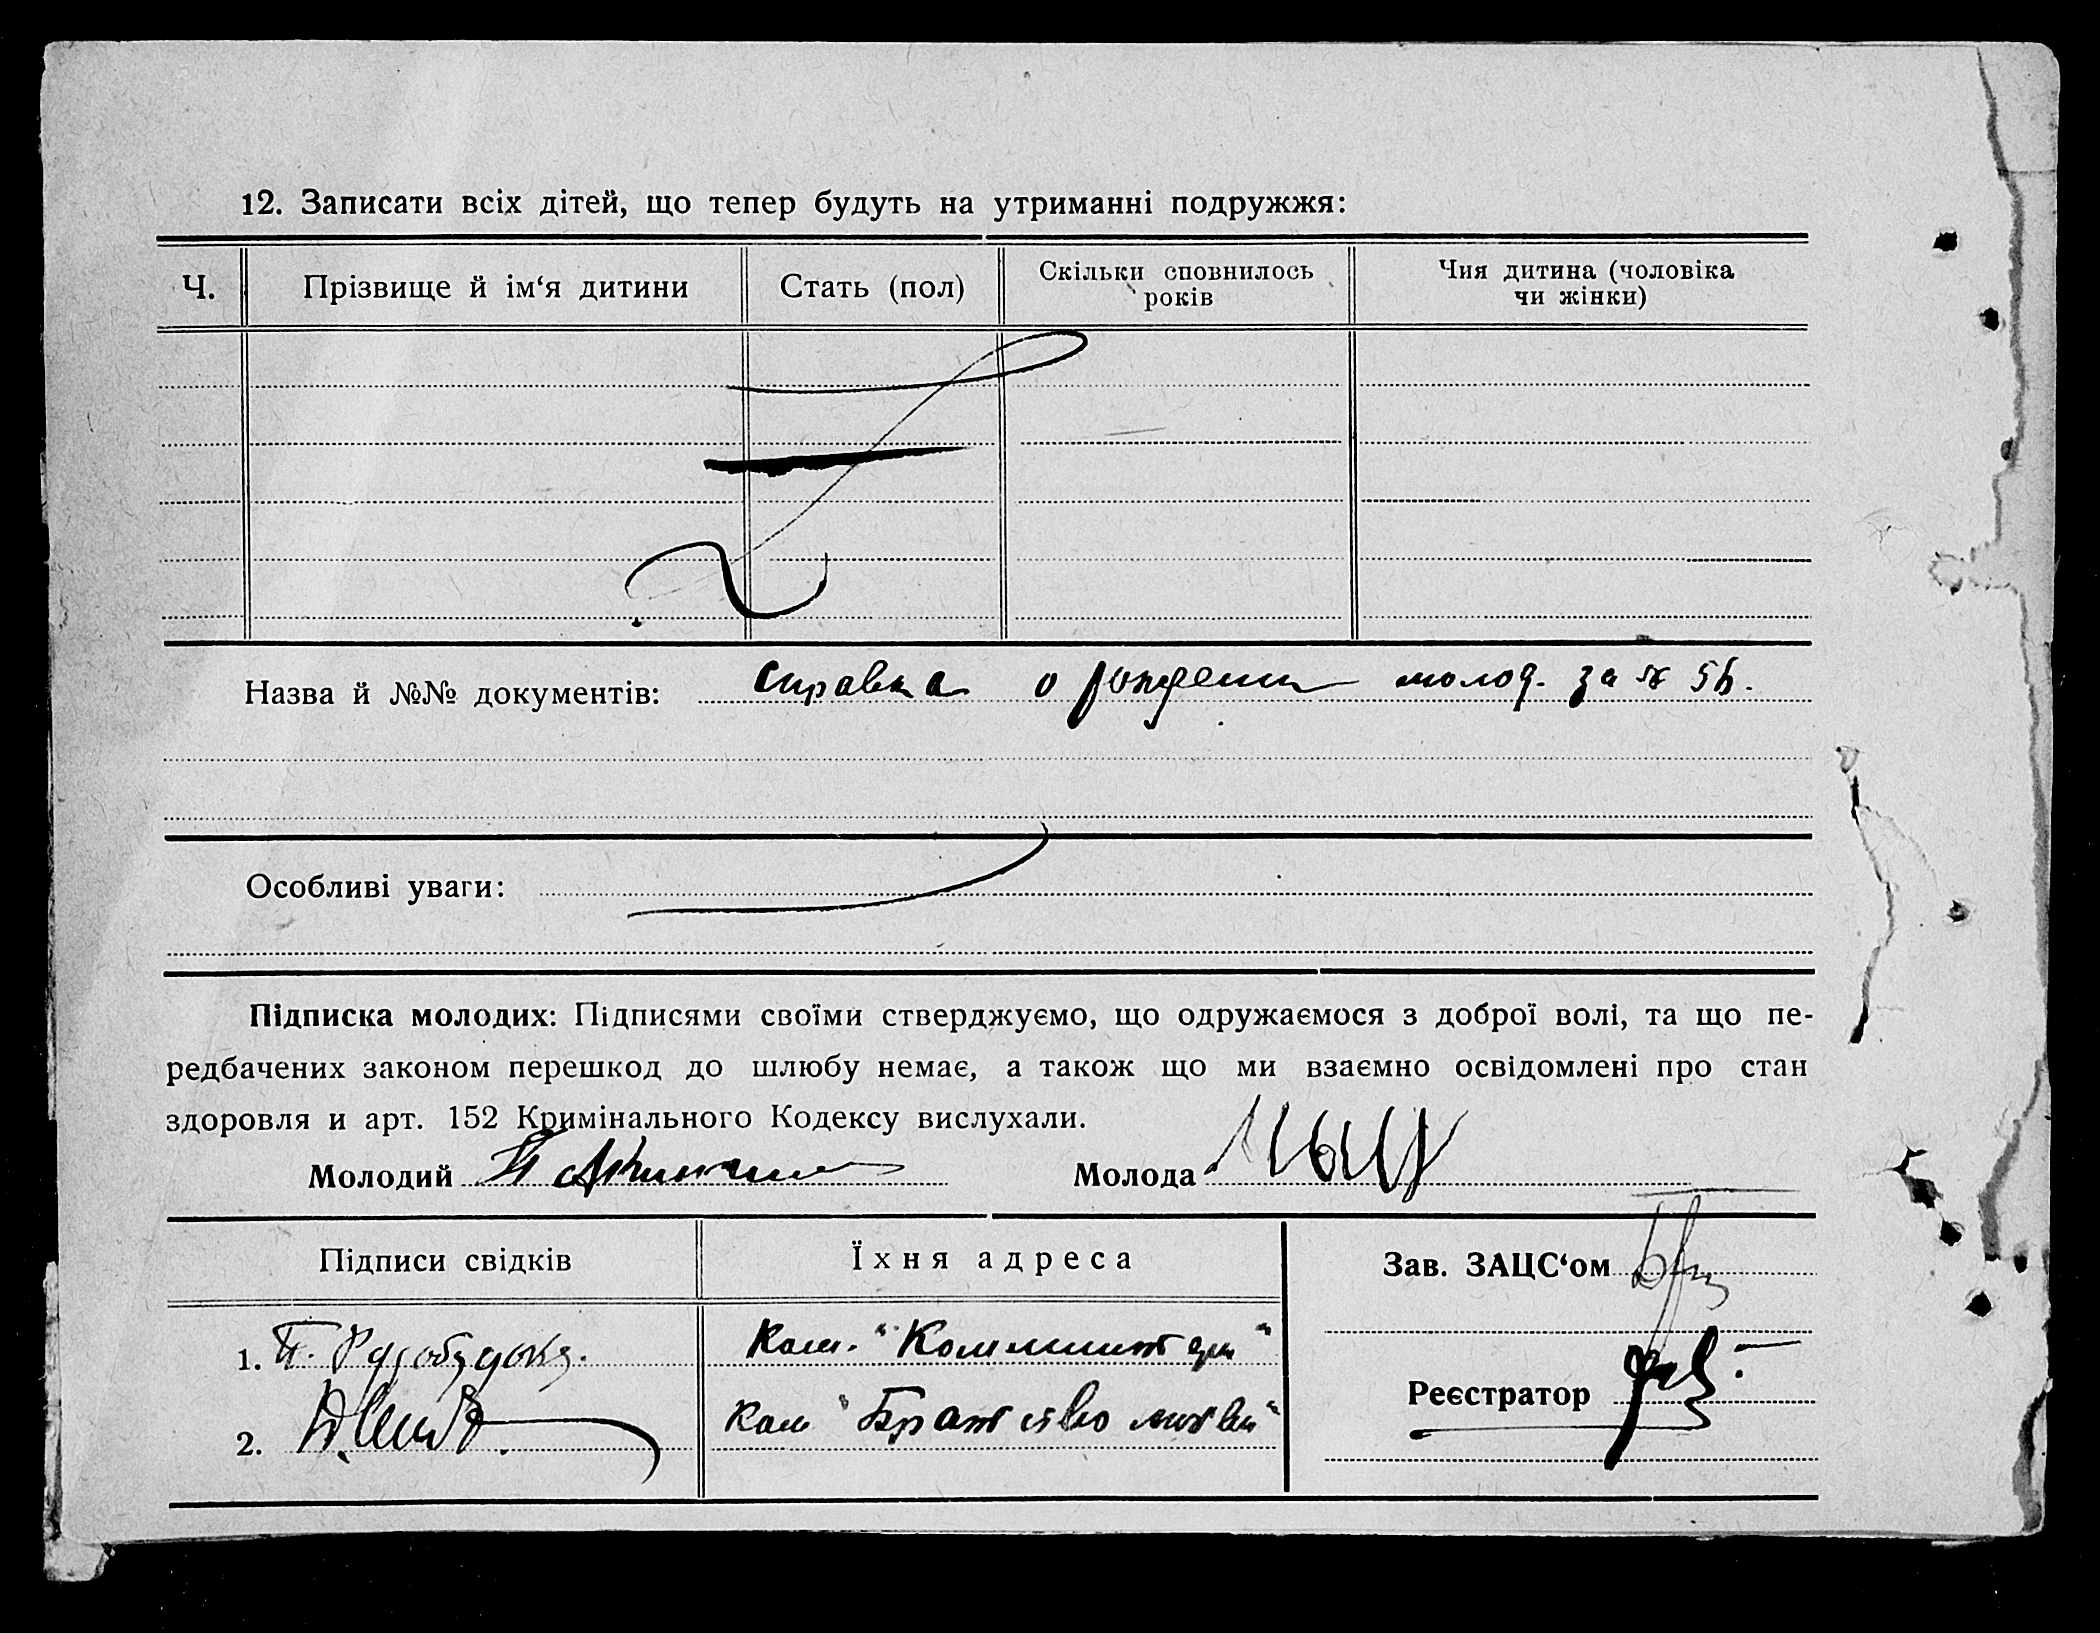 12. Записати всіх дітей, що тепер будуть на утриманні подружжя:
Ч.
Прізвище й ім‘я дитини
Стать (пол)
Скільки сповнилось
років
Чия дитина (чоловіка
чи жінки)
Назва й №№ документів: справка о рождении молод. за №
Особливі уваги:
Підписка молодих: Підписями своїми стверджуємо, що одружаємося з доброї волі, та що пе-
редбачених законом перешкод до шлюбу немає, а також що ми взаємно освідомлені про стан
здоровля и арт. 152 Кримінального Кодексу вислухали.
Молодий
Молода
Підписи свідків
Їхня адреса
Зав. ЗАЦС‘ом
1. П.
Ком. "Коминтерн"
Реєстратор
2.
Ком "Братство